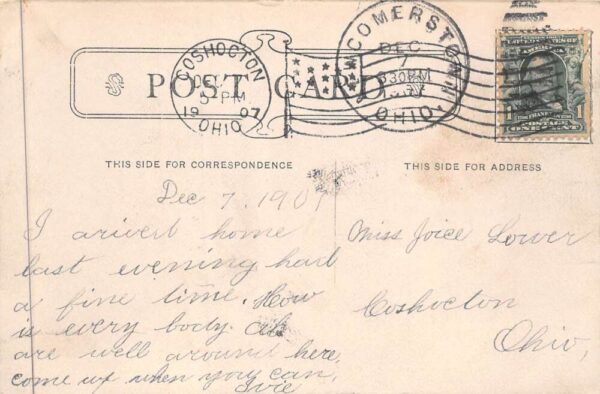 COSHOCTON
DEC 7
5-PM
1907
OHIO
NEWCOMERSTOWN
DEC
7
830PM
OHIO.
POST CARD
1 FRANKLIN
POSTAGE
ONE CENT
THIS SIDE FOR CORRESPONDENCE
THIS SIDE FOR ADDRESS
Dec 7, 1907
I arivert home
last evening hart
a fine time. How
is every body. all
are well around here,
come up when you can,
Miss Joice Lower
Coshocton
Ohio,